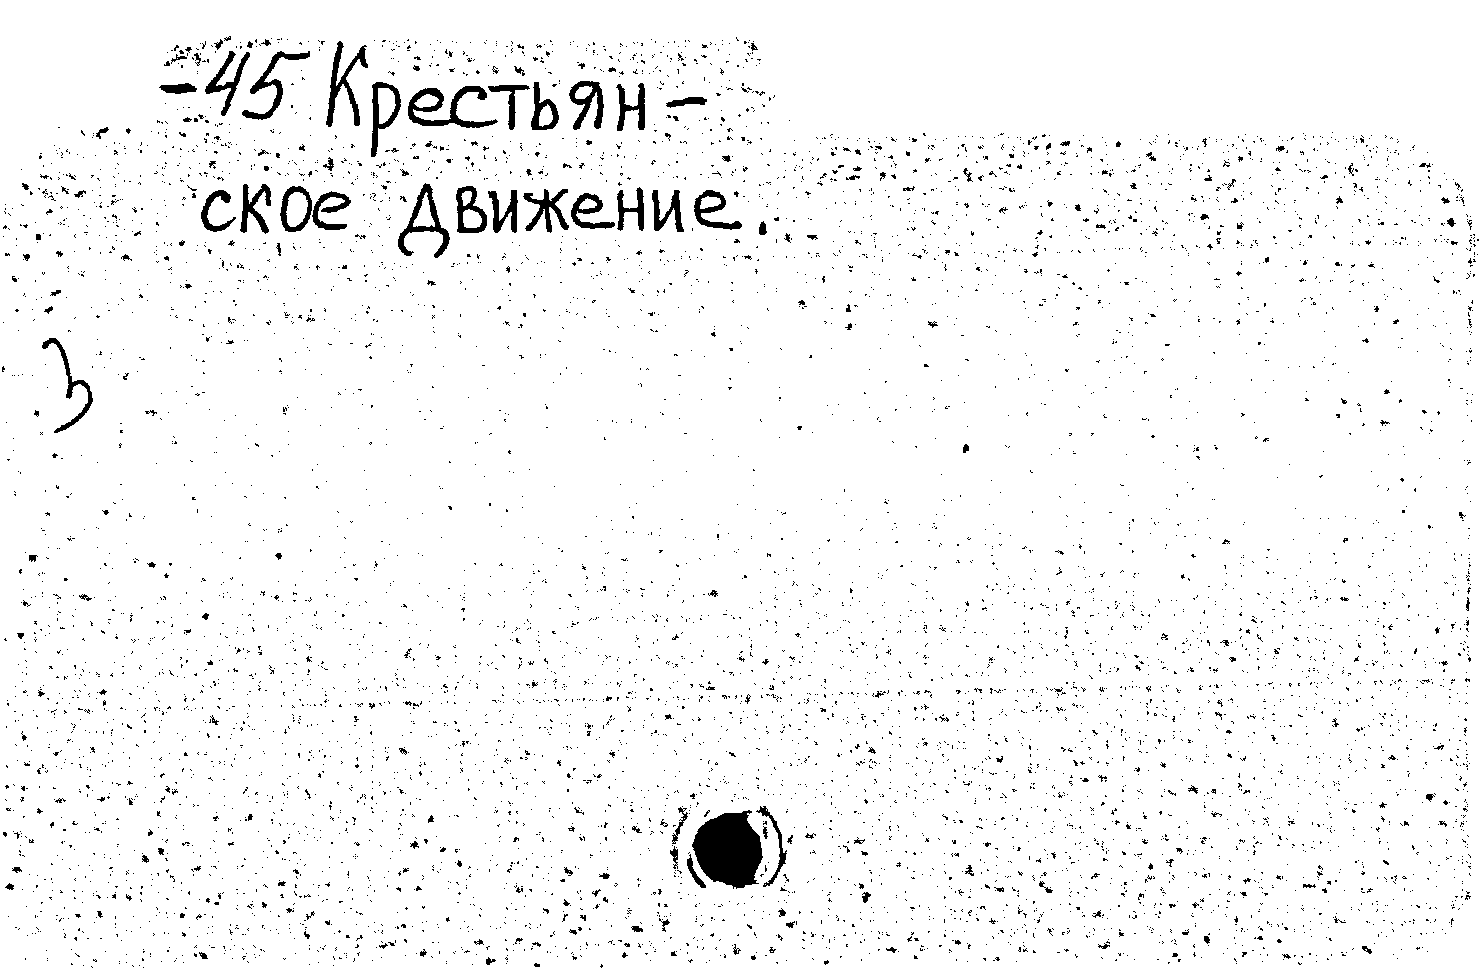 -45 Крестьян-
ское движение.